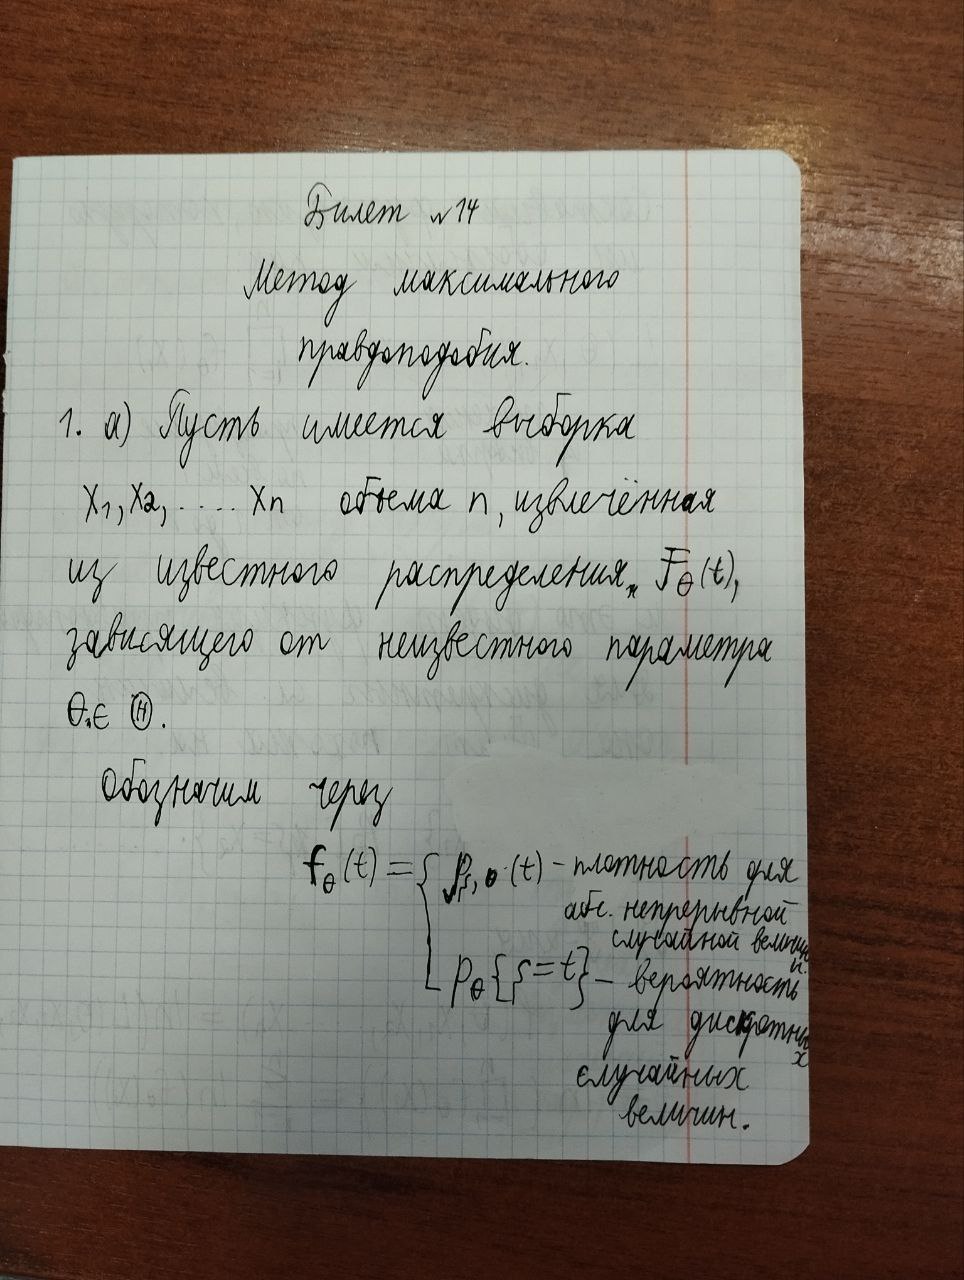 Билет №14
Метод максимального
правдоподобия.
1. а) Пусть имеется выборка
X₁, X₂, .... Xn объема n, извлечённая
из известного распределения Fθ(t),
зависящего от неизвестного параметра
θ ∈ Ⓗ.
Обозначим через
fθ(t) = { pξ,θ(t) – плотность для
абс. непрерывной
случайной величин
ы.
pθ{ξ=t} – вероятность
для дискретны
х
случайных
величин.